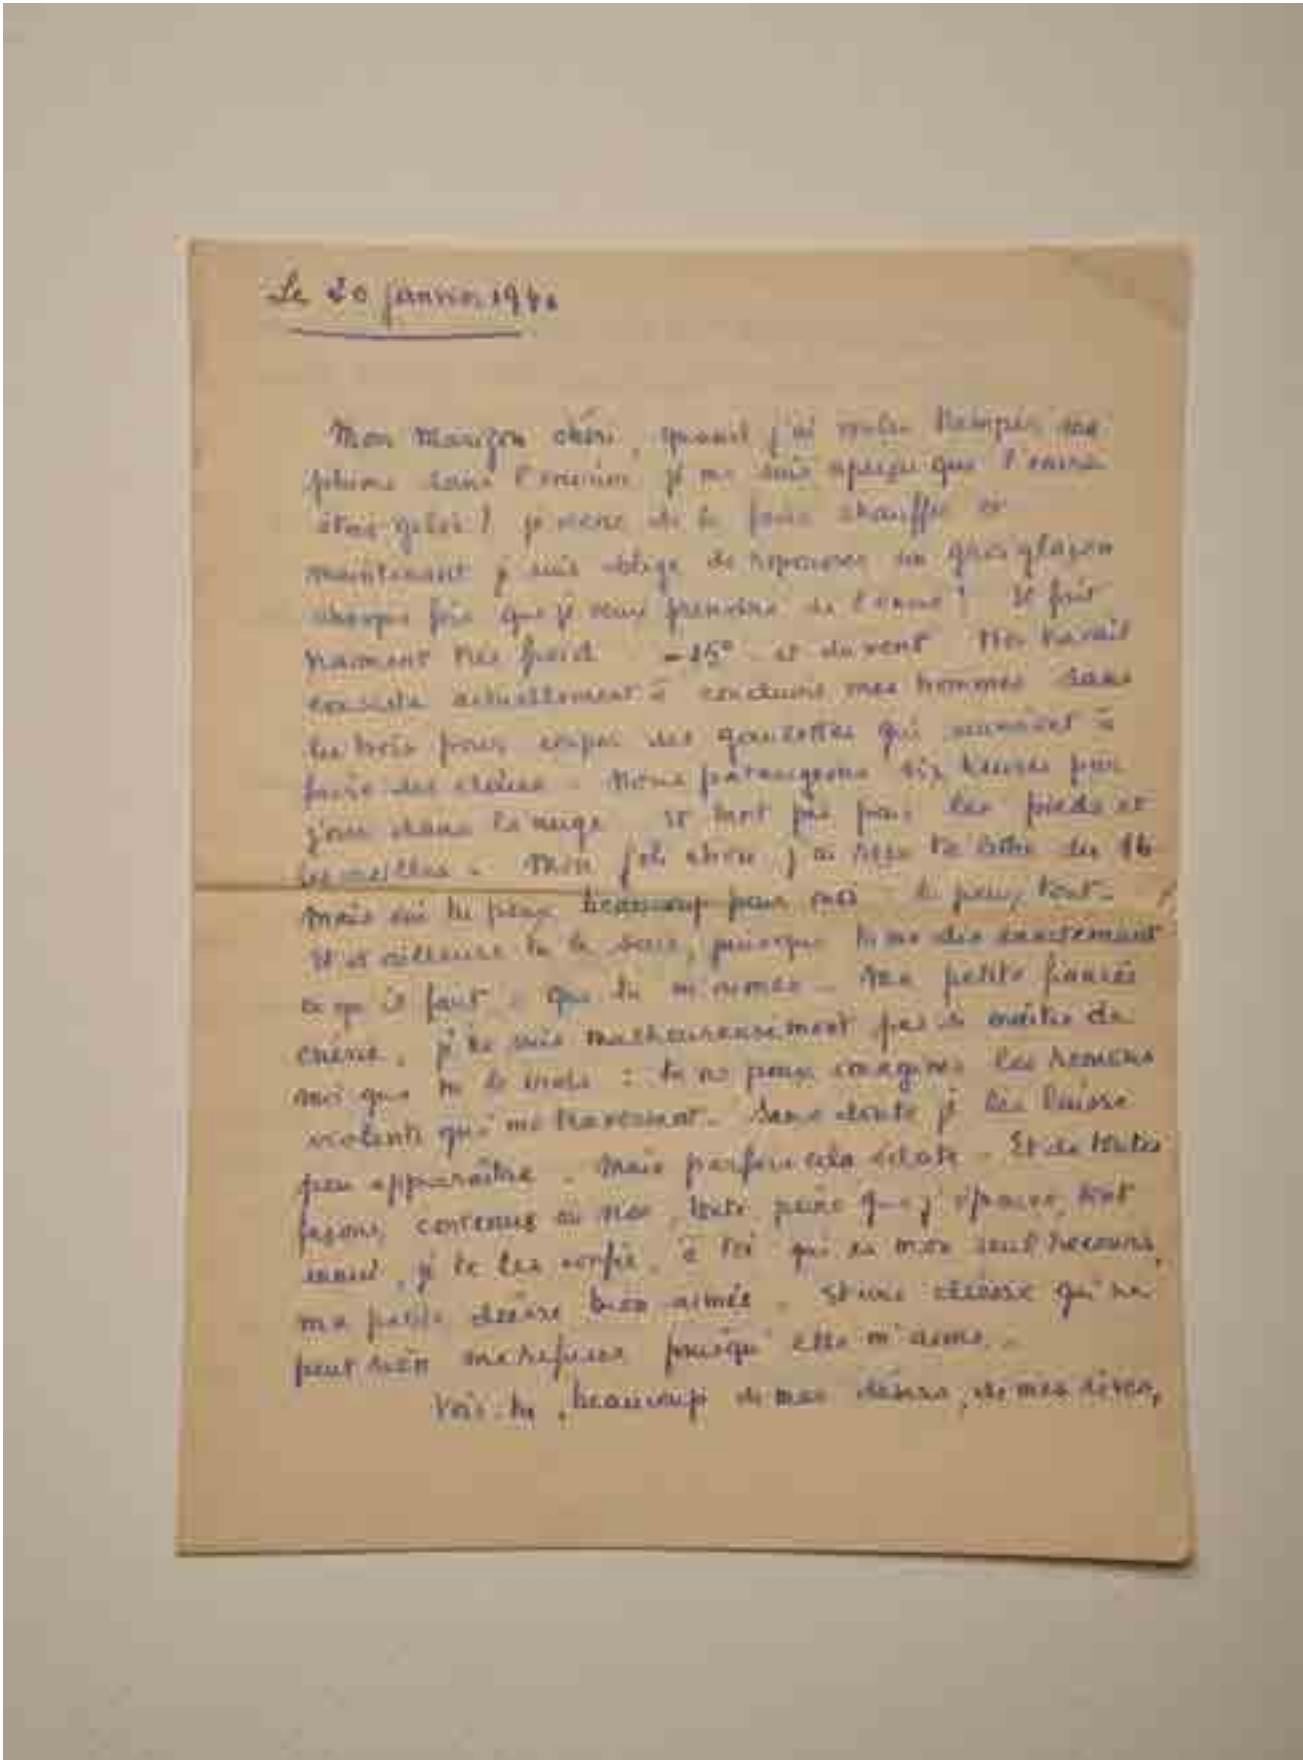 Le 20 janvier 1940
Mon Marizon chéri, quand j'ai voulu tremper ma
plume dans l'encrier je me suis aperçu que l'encre
était gelée! je viens de le faire chauffer et
maintenant je suis obligé de repousser un gros glaçon
chaque fois que je veux prendre de l'encre! Il fait
vraiment très froid -15° et du vent Mon travail
consiste actuellement à conduire mes hommes dans
les bois pour couper des qui servent à
faire des claies - Nous pataugeons six heures par
jour dans la neige et tant pis pour les pieds et
les oreilles - Mon chéri j'ai reçu ta lettre du 16
Mais oui tu peux beaucoup pour moi tu peux tout -
Et d'ailleurs tu le sais, puisque tu me dis exactement
ce qu'il faut : que tu m'aimes - Ma petite fiancée
chérie, je ne suis malheureusement pas si maître de
moi que tu le crois : tu ne peux imaginer les remous
violents qui me traversent - Sans doute je les laisse
peu apparaître - Mais parfois cela éclate - Et de toutes
façons, contenus ou non, toute peine que j'éprouve, tout
, je te les confie, à toi qui es mon seul recours,
ma petite déesse bien-aimée - Et une déesse qui ne
peut rien me refuser puisqu'elle m'aime -
Vois-tu, beaucoup de mes désirs, de mes rêves,